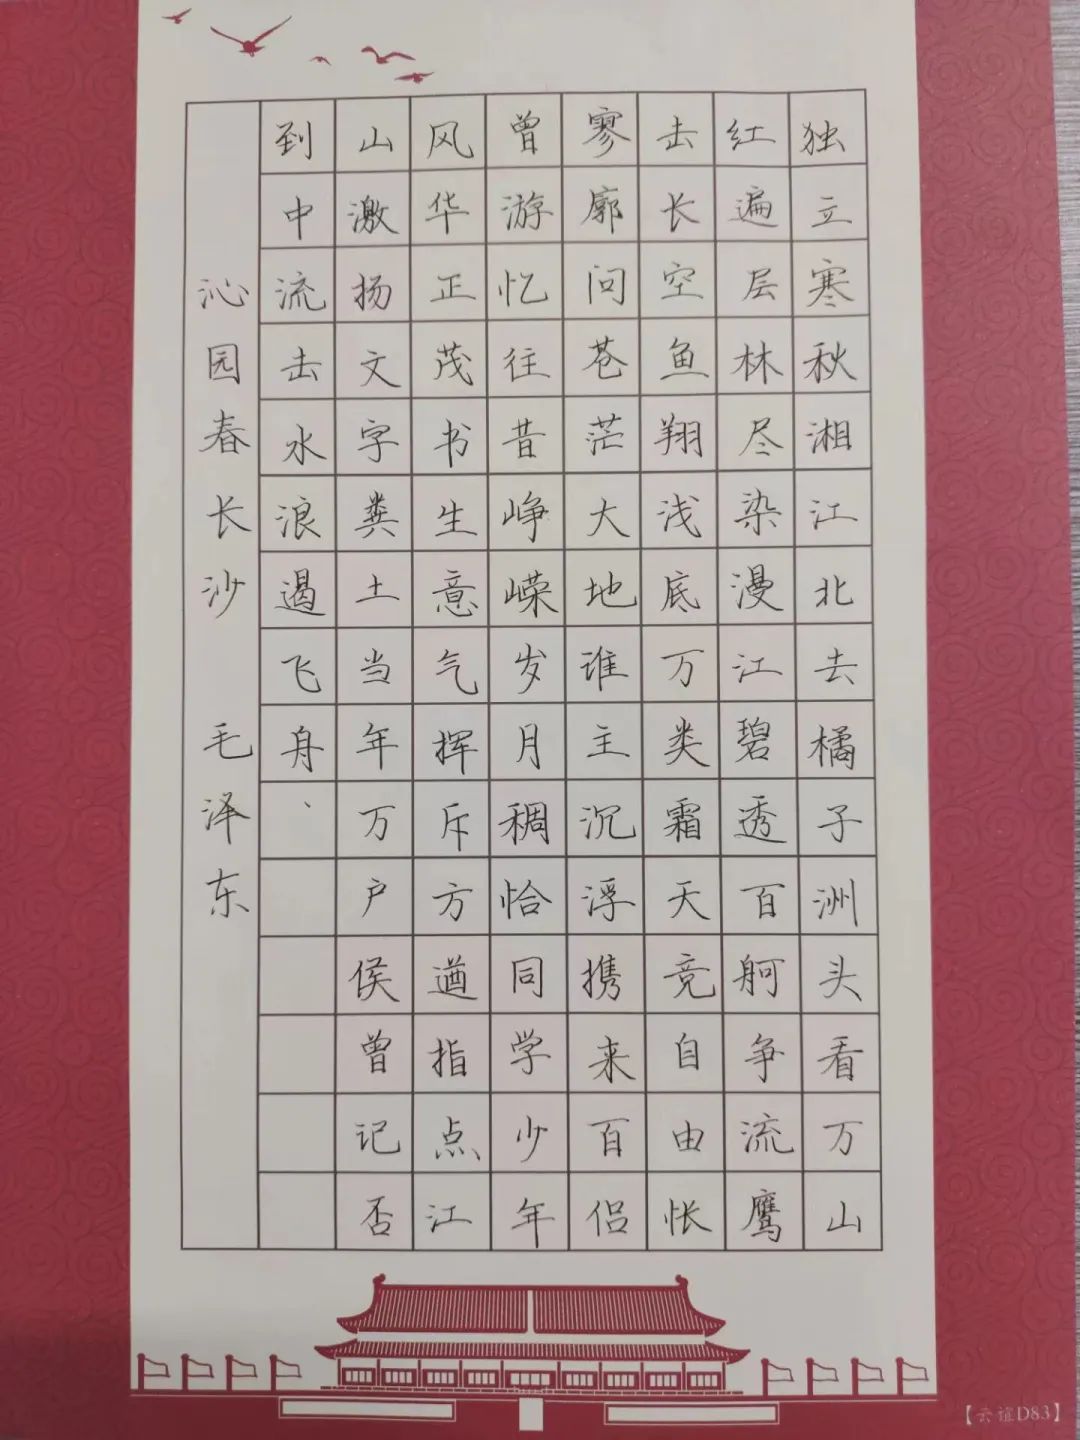 独立寒秋湘江北去橘子洲头看万山
红遍层林尽染漫江碧透百舸争流鹰
击长空鱼翔浅底万类霜天竞自由怅
寥廓问苍茫大地谁主沉浮携来百侣
曾游忆往昔峥嵘岁月稠恰同学少年
风华正茂书生意气挥斥方遒指点江
山激扬文字粪土当年万户侯曾记否
到中流击水浪遏飞舟、
沁园春长沙 毛泽东
【云谊D83】